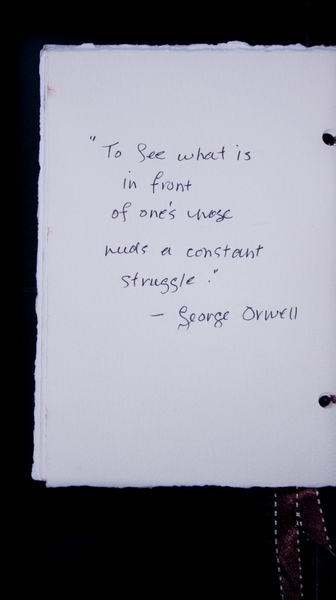 "To see what is
in front
of one's nose
needs a constant
struggle."
— George Orwell